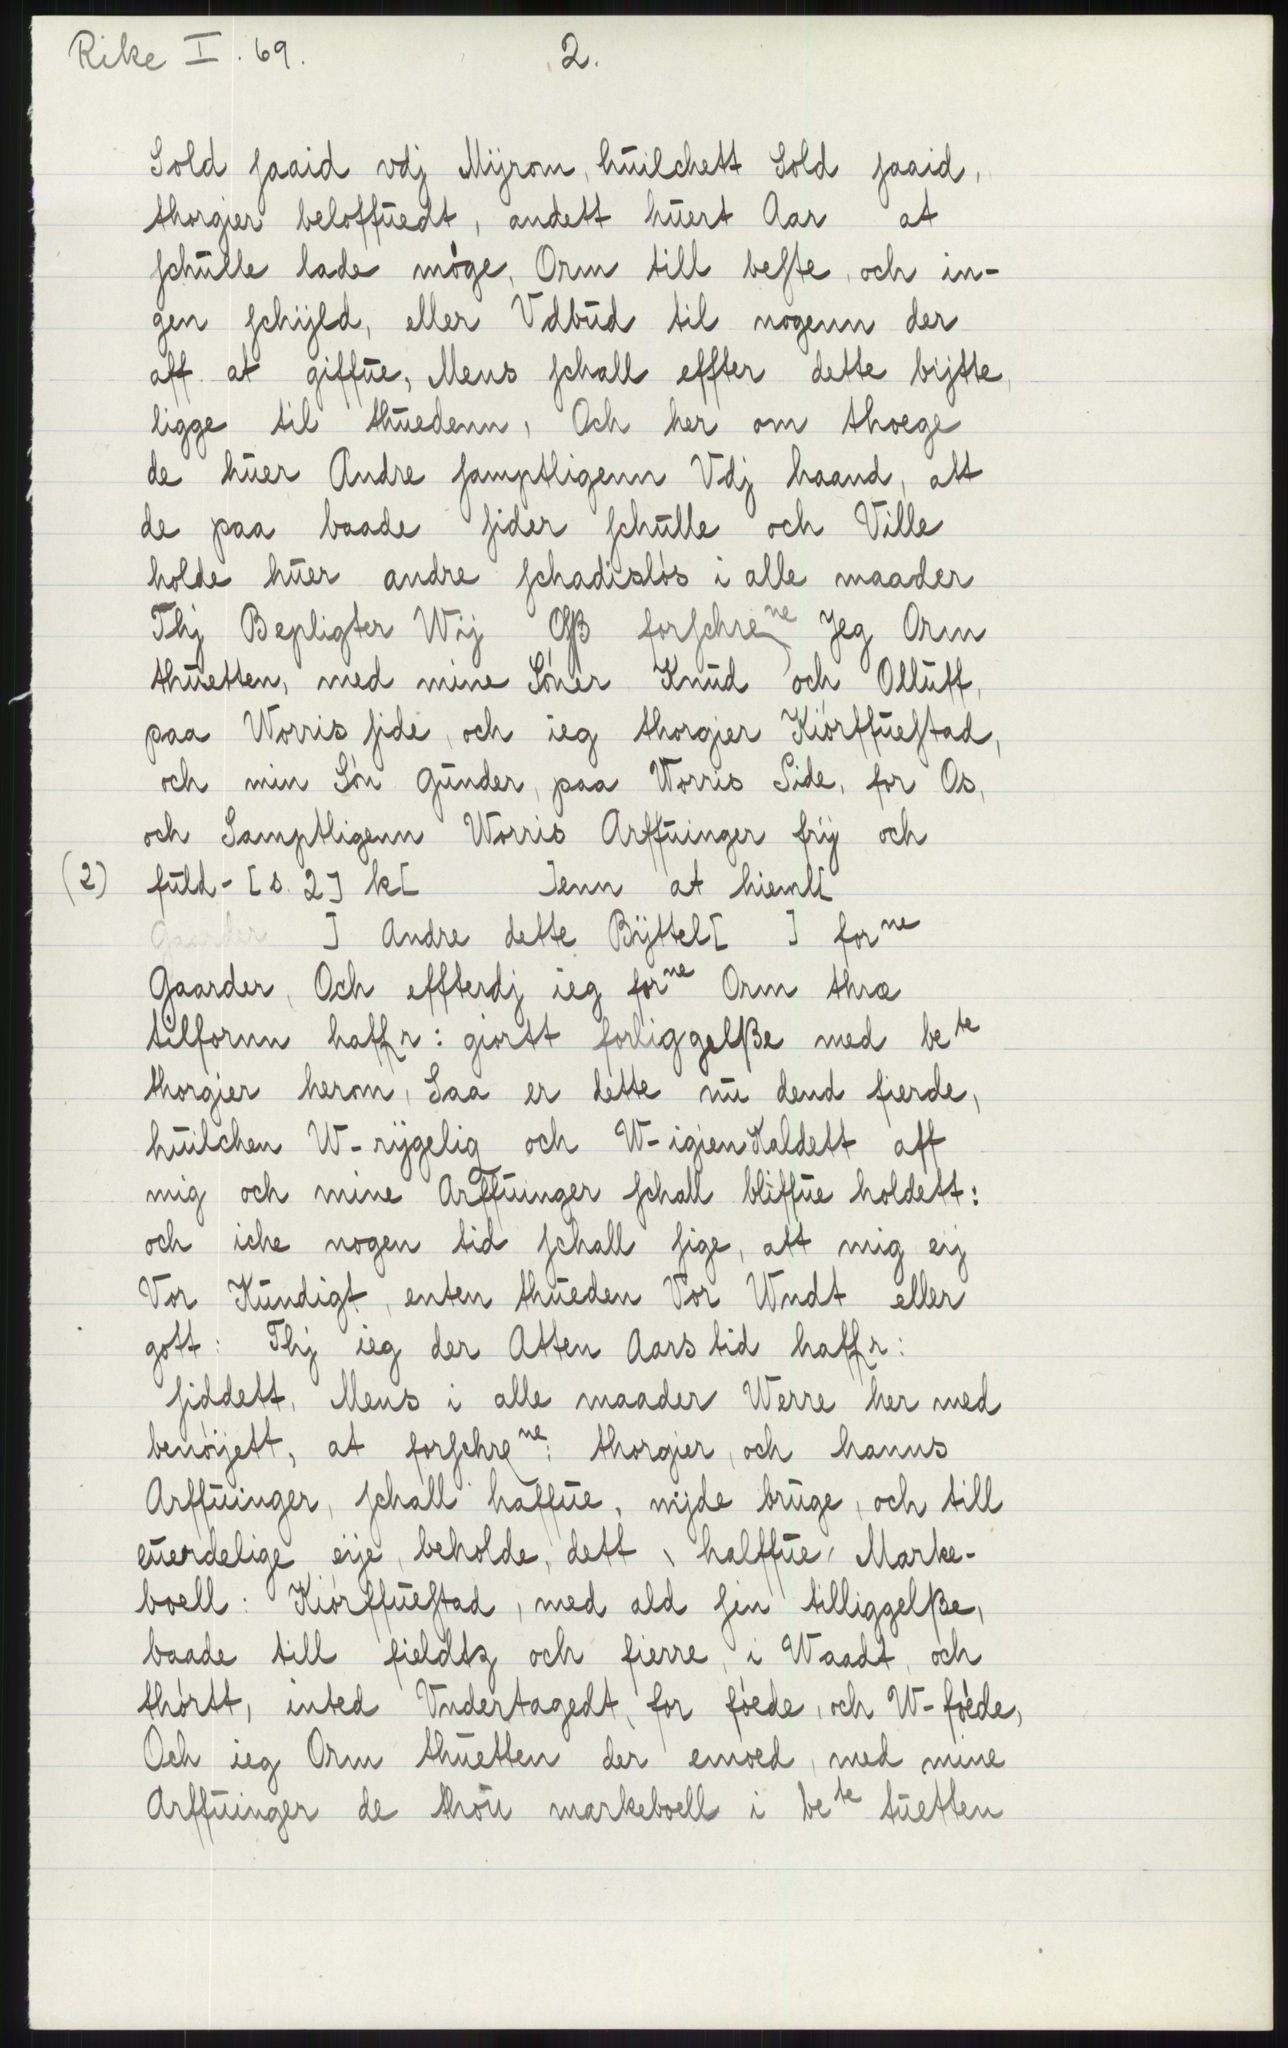 Rike I. 69.
2.
Sold saaid vdj Mÿrom, huilchett Sold saaid,
thorgier beloffuedt, andett huert Aar at
schulle lade møge, Orm till beste, och in-
gen schÿld, eller Vdbud til nogenn der
aff at giffue, Mens schall effter dette bijtte,
ligge til thuedenn, Och her om thoege
de huer Andre samptligenn Vdj haand, att
de paa baade sider schulle och Ville
holde huer andre schadisløs i alle maader
Thj Bepligter Wij Oß forschrene Jeg Orm
thuetten, med mine Sønner Knud och Olluff,
paa Worris side, och ieg thorgier Kiørffuestad,
och min Søn Gunder, paa Worris Side, for Os,
och Samptligenn Worris Arffuinger frÿ och
(2) fuld- [s. 2] k[ ]enn at hieml[
Gaarder ] Andre dette Bÿttel[ ] forne
Gaarder, Och effterdj ieg forne Orm thræ
tilfornn haffr: giortt forliggelße med bete
thorgier herom, Saa er dette nu dend fierde,
huilchen W-rÿgelig och W-igienKaldett aff
mig och mine Arffuinger schall bliffue holdett:
och iche nogen tid schall sige, att mig eij
Vor Kundigt, enten thueden Vor Wndt eller
gott: Thj ieg der Atten Aars tid haffr:
siddett, Mens i alle maader Werre her med
benøÿett, at forschrene: thorgier, och hanns
Arffuinger, schall haffue, nÿde bruge, och till
euerdelige eije, beholde, dett halffue Marke-
boell: Kiørffuestad, med ald sin tilliggelße,
baade till fieldtz och fierre, i Waadt och
thørtt, inted Vndertagedt, for føede, och W-føede,
Och ieg Orm thuetten der emoed, med mine
Arffuinger de thou markeboell i bete tuetten